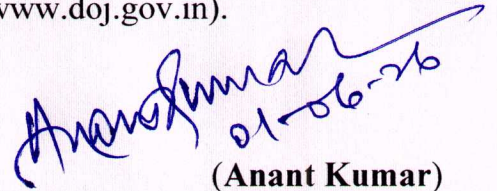 www.doj.gov.in).
Anant Kumar
01-06-26
(Anant Kumar)